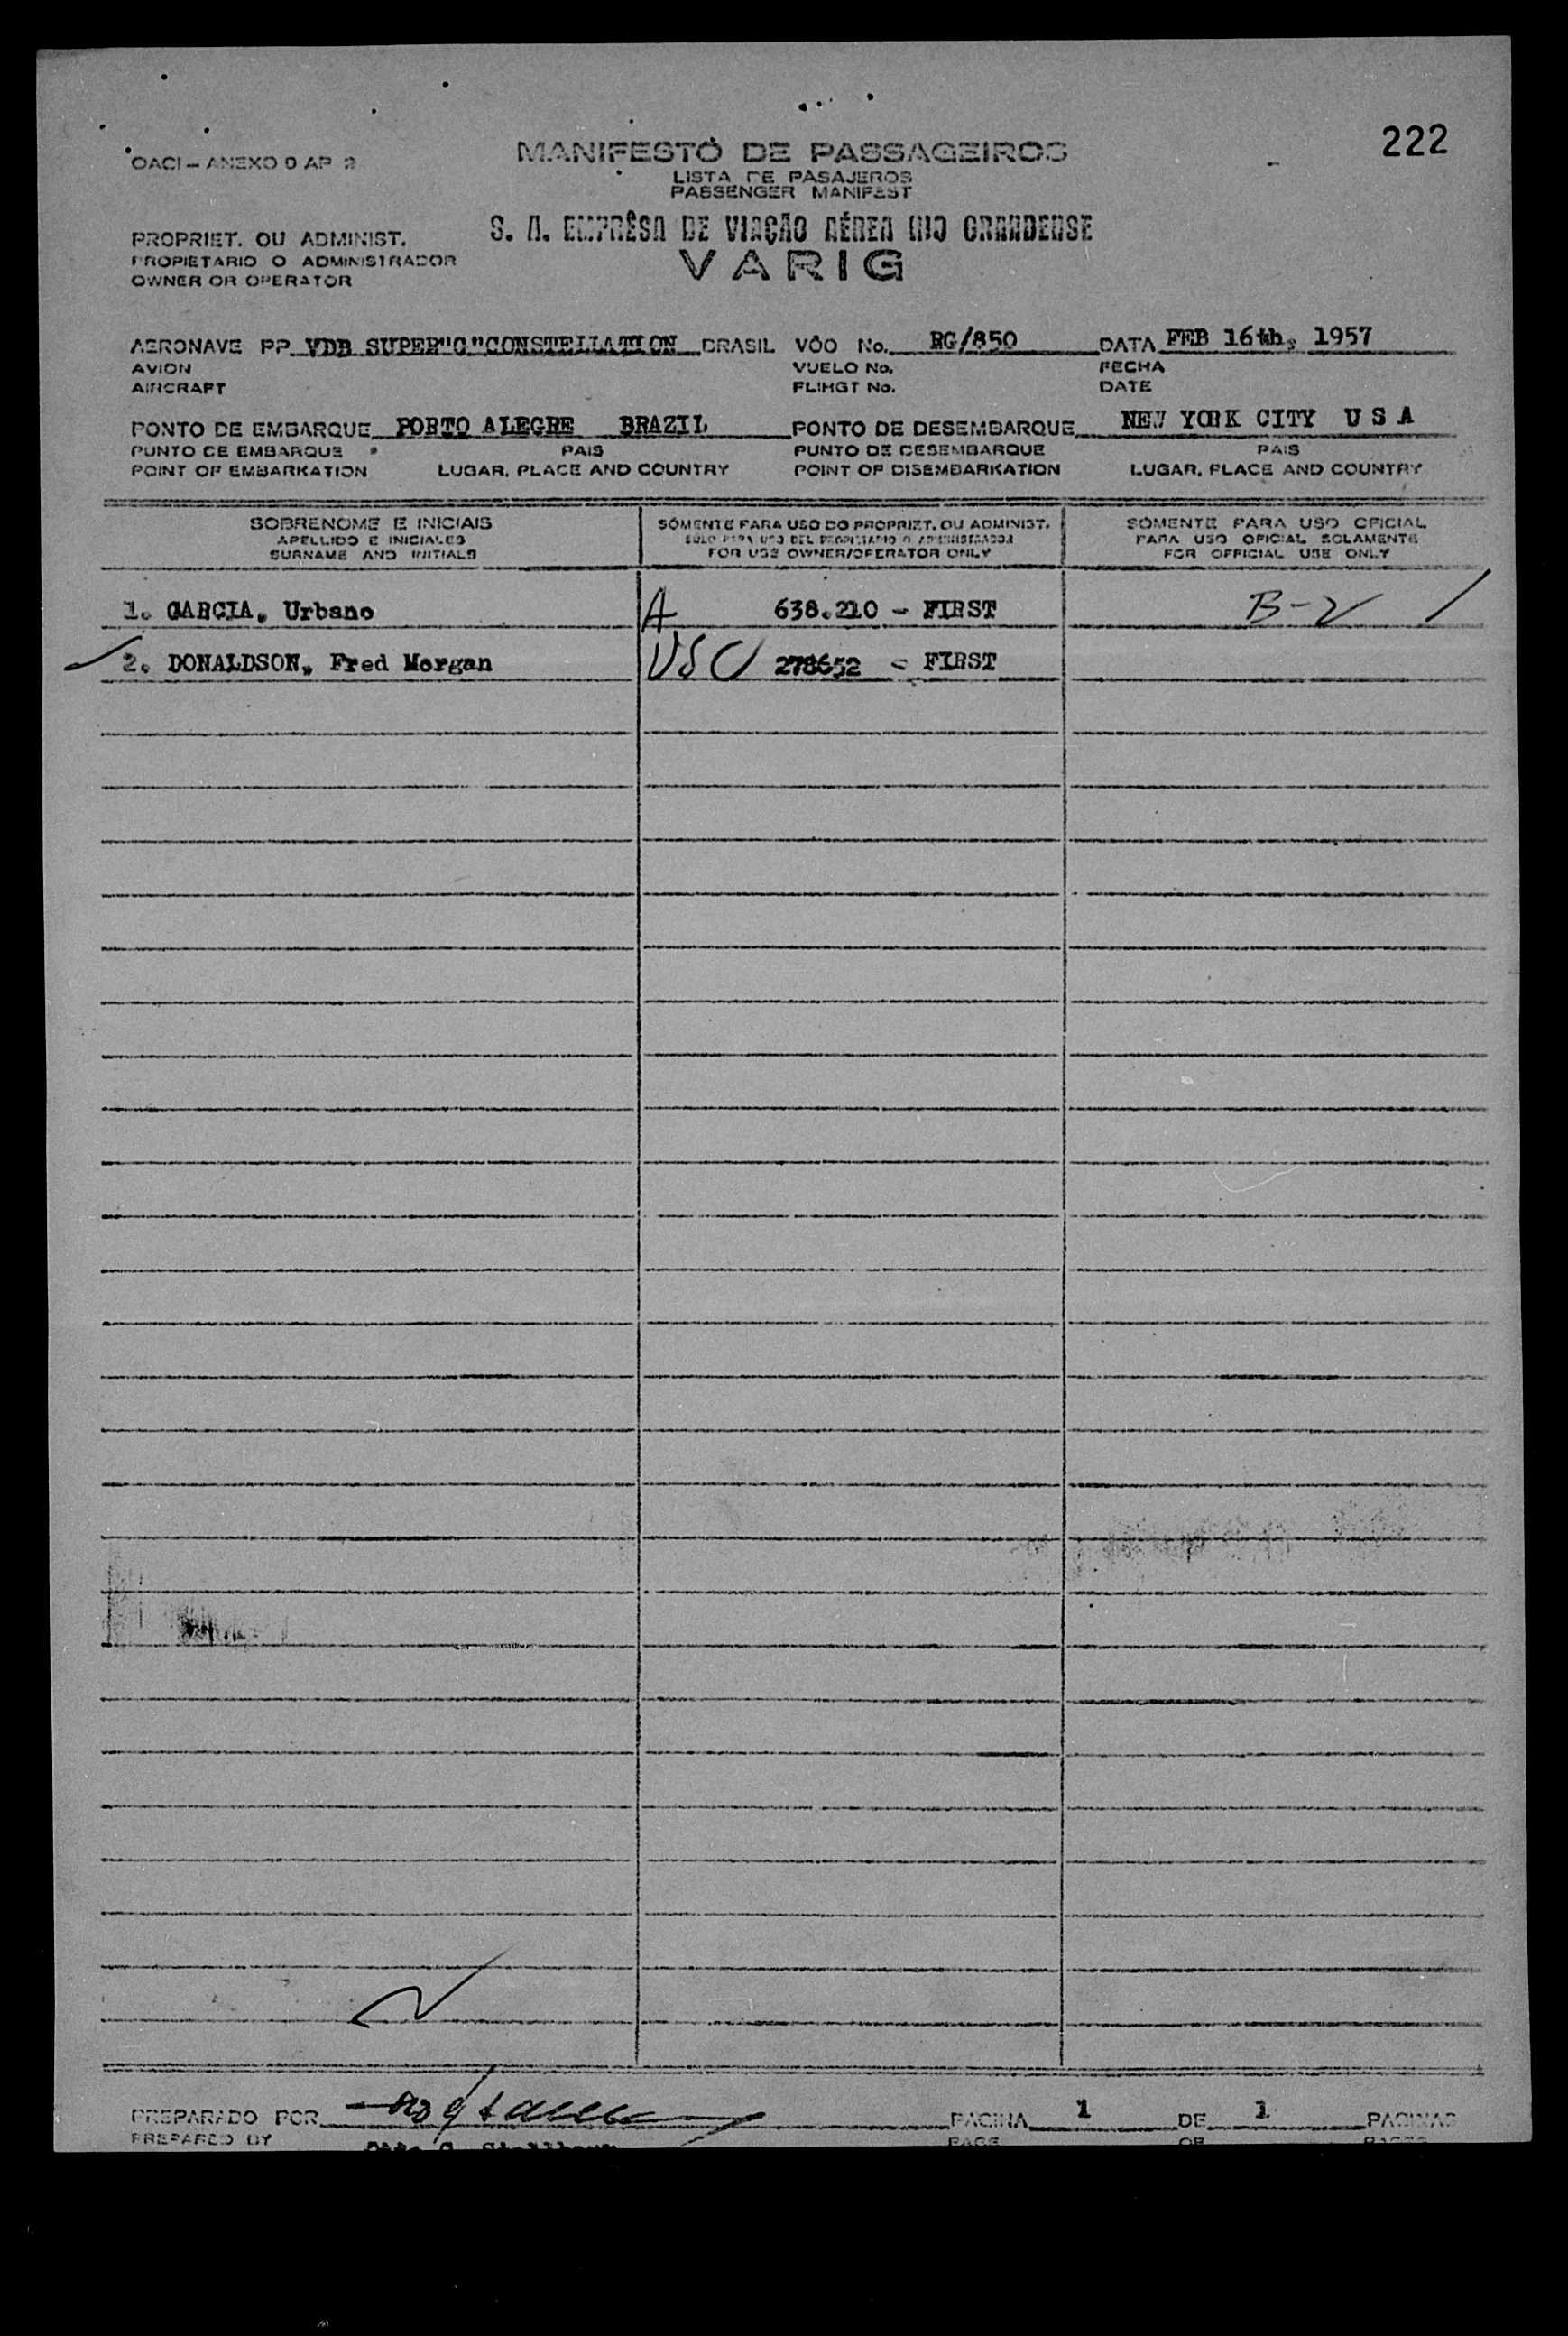 222
OACI – ANEXO 9 AP 2
MANIFESTO DE PASSAGEIROS
LISTA DE PASAJEROS
PASSENGER MANIFEST
PROPRIET. OU ADMINIST.
PROPIETARIO O ADMINISTRADOR
OWNER OR OPERATOR
S. A. EMPRÊSA DE VIAÇÃO AÉREA RIO GRANDENSE
VARIG
AERONAVE PP VDB SUPER"G"CONSTELLATION BRASIL VÔO No. RG/850 DATA FEB 16th, 1957
AVION VUELO No. FECHA
AIRCRAFT FLIHGT No. DATE
PONTO DE EMBARQUE PORTO ALEGRE BRAZIL PONTO DE DESEMBARQUE NEW YORK CITY U S A
PUNTO DE EMBARQUE PAIS PUNTO DE DESEMBARQUE PAIS
POINT OF EMBARKATION LUGAR, PLACE AND COUNTRY POINT OF DISEMBARKATION LUGAR, PLACE AND COUNTRY
SOBRENOME E INICIAIS SÒMENTE PARA USO DO PROPRIET. OU ADMINIST. SÒMENTE PARA USO OFICIAL
APELLIDO E INICIALES SOLO PARA USO DEL PROPIETARIO O ADMINISTRADOR PARA USO OFICIAL SOLAMENTE
SURNAME AND INITIALS FOR USE OWNER/OPERATOR ONLY FOR OFFICIAL USE ONLY
1. GARCIA, Urbano A 638.210 - FIRST B-2 /
2. DONALDSON, Fred Morgan USC 278652 - FIRST
PREPARADO POR PAGINA 1 DE 1 PAGINAS
PREPARED BY PAGE OF PAGES